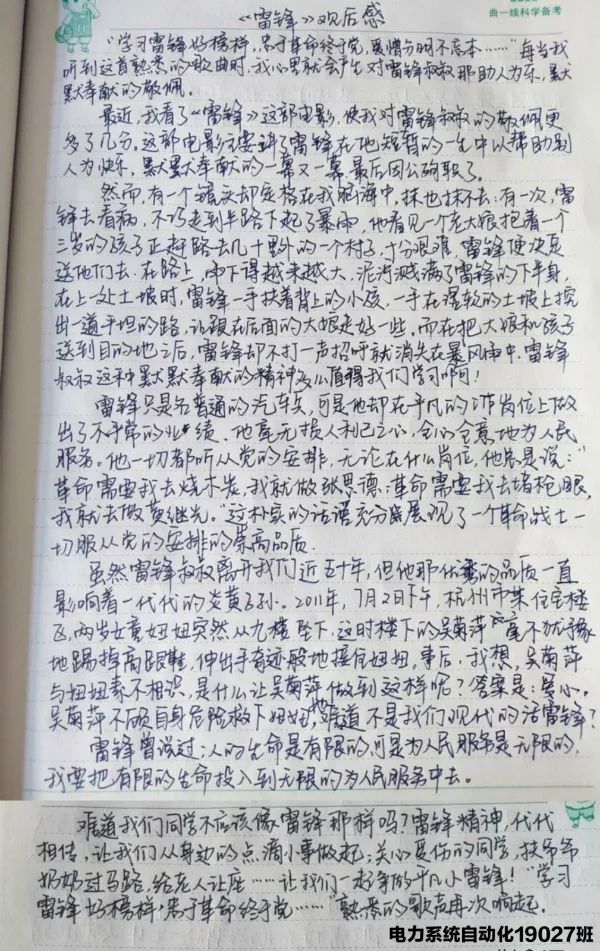 曲一线科学备考
《雷锋》观后感
"学习雷锋好榜样,忠于革命忠于党,爱憎分明不忘本……"每当我
听到这首熟悉的歌曲时,我心里就会产生对雷锋叔叔那助人为乐,默
默奉献的敬佩。
最近,我看了《雷锋》这部电影,使我对雷锋叔叔的敬佩更
多了几分,这部电影主要讲了雷锋在他短暂的一生中以帮助别
人为快乐,默默奉献的一幕又一幕,最后因公殉职了。
然而,有一个镜头却定格在我脑海中,抹也抹不去:有一次,雷
锋去看病,不巧走到半路下起了暴雨,他看见一个老大娘抱着一个
三岁的孩子正赶路去几十里外的一个村子,十分艰难,雷锋便决定
送他们去.在路上,雨下得越来越大,泥污溅满了雷锋的下半身,
在上一处土坡时,雷锋一手扶着背上的小孩,一手在湿软的土坡上挖
出一道平坦的路,让跟在后面的大娘走好一些.而在把大娘和孩子
送到目的地之后,雷锋却不打一声招呼就消失在暴风雨中.雷锋
叔叔这种默默奉献的精神多么值得我们学习啊!
雷锋只是名普通的汽车兵,可是他却在平凡的工作岗位上做
出了不平常的业绩.他毫无损人利己之心,全心全意地为人民
服务。他一切都听从党的安排,无论在什么岗位,他总是说:"
革命需要我去烧木炭,我就做张思德;革命需要我去堵枪眼,
我就去做黄继光。"这朴实的话语充分展现了一个革命战士一
切服从党的安排的崇高品质.
虽然雷锋叔叔离开我们近五十年,但他那优秀的品质一直
影响着一代代的炎黄子孙。2011年,7月2日下午,杭州市某住宅楼
区,两岁女童妞妞突然从九楼坠下,这时楼下的吴菊萍毫不犹豫
地踢掉高跟鞋,伸出手奇迹般地接住妞妞,事后,我想,吴菊萍
与妞妞素不相识,是什么让吴菊萍做到这样呢?答案是:爱心。
吴菊萍不顾自身危险救下妞妞,她难道不是我们现代的活雷锋?
雷锋曾说过:人的生命是有限的,可是为人民服务是无限的,
我要把有限的生命投入到无限的为人民服务中去。
难道我们同学不应该像雷锋那样吗?雷锋精神,代代
相传,让我们从身边的点滴小事做起;关心受伤的同学,扶爷爷
奶奶过马路,给老人让座……让我们一起争做平凡小雷锋!"学习
雷锋好榜样,忠于革命忠于党……"熟悉的歌声再次响起.
电力系统自动化19027班